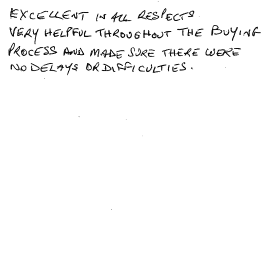 EXCELLENT IN ALL RESPECTS
VERY HELPFUL THROUGHOUT THE BUYING
PROCESS AND MADE SURE THERE WERE
NO DELAYS OR DIFFICULTIES.